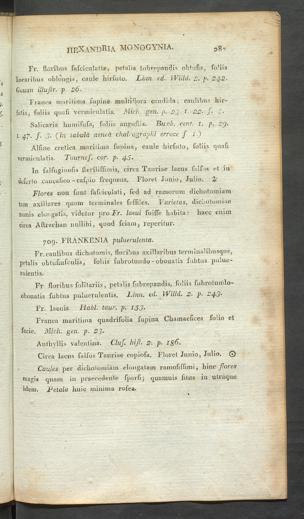 HEXANDRIA MONOGYNIA. 28
Fr. floribus fasciculatis, petalis subrepandis obtusis, foliis
linearibus oblongis, caule hirsuto. Linn. ed. Willd. 2. p. 242.
Gmum illustr. p. 26.
Franca maritima supina multiflora candida; caulibus hir-
sutis, foliis quasi vermiculatis. Mich. gen. p. 23 t. 22. f. 2.
Salicaria humifusa, foliis angustis. Buxb. cent. 1. p. 29.
t. 47. f. 3. (in tabula aenea chalcographi errore f 1.)
Alsine cretica maritima supina, caule hirsuto, foliis quasi
vermiculatis. Tournef. cor. p. 45.
In salsuginosis sterilissimis, circa Tauriae lacus salsos et in
deserto caucasico-caspio frequens. Floret Junio, Julio. ♃
Flores non sunt fasciculati, sed ad ramorum dichotomiam
tum axillares quum terminales sessiles. Varietas, dichotomiae
ramis elongatis, videtur pro Fr. laevi fuisse habita: haec enim
circa Astrachan nullibi, quod sciam, reperitur.
709. FRANKENIA pulverulenta.
Fr. caulibus dichotomis, floribus axillaribus terminalibusque,
petalis obtusiusculis, foliis subrotundo-obovatis subtus pulve-
rulentis.
Fr floribus solitariis, petalis subrepandis, foliis subrotundo-
obovatis subtus pulverulentis. Linn. ed. Willd. 2. p. 243.
Fr. laevis Habl. taur. p. 153.
Franca maritima quadrifolia supina Chamaesices folio et
facie. Mich. gen. p. 23.
Anthyllis valentina. Clus. hist. 2. p. 186.
Circa lacus salsos Tauriae copiosa. Floret Junio, Julio. ☉
Caules per dichotomiam elongatam ramosissimi, hinc flores
magis quam in praecedente sparsi; quamuis situs in utraque
idem. Petala huic minima rosea.